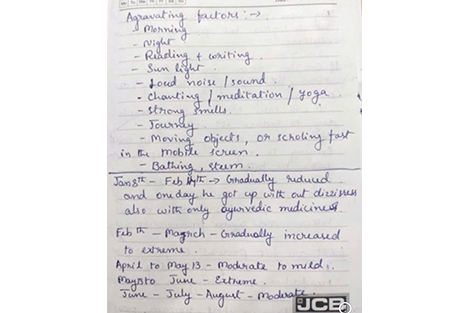 Agravating factors :→.
- Morning
- Night
- Reading + writing.
- Sun light.
- Loud noise / sound.
- Chanting / meditation / yoga.
- Strong smells.
- Journey
- Moving objects, or scholing fast
in the mobile screen.
- Bathing, steem.
Jan 8th - Feb 14th → Gradually reduced
and one day he got up with out dizzisess
also with only ayurvedic medicines.
Feb - March - Gradually increased
to extreme.
April to May 13 - Moderate to mild.
May to June - Extreme.
June - July - August - Moderate.
JCB